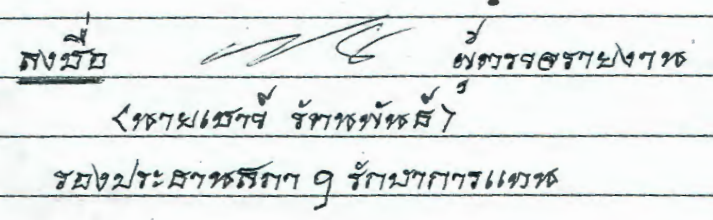 ลงชื่อ ผู้ตรวจรายงาน
(นายเชาว์ รัตนพันธ์)
รองประธานสภา ฯ รักษาการแทน